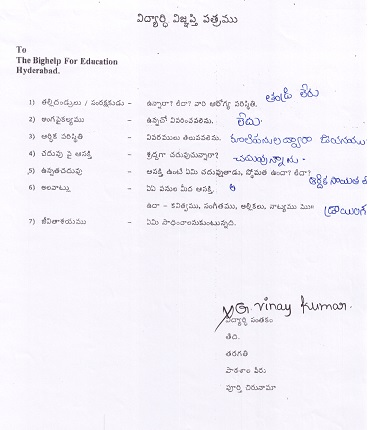 విద్యార్థి విజ్ఞప్తి పత్రము
To
The Bighelp For Education
Hyderabad.
1) తల్లిదండ్రులు / సంరక్షకుడు - ఉన్నారా? లేదా? వారి ఆరోగ్య పరిస్థితి. తండ్రి లేరు
2) అంగవైకల్యము - ఉన్నచో వివరించవలెను. లేదు
3) ఆర్థిక పరిస్థితి - వివరములు తెలుపవలెను.
4) చదువు పై ఆసక్తి - శ్రద్ధగా చదువుచున్నారా? చదువుచున్నాను
5) ఉన్నతచదువు - ఆసక్తి ఉంటే ఏమి చదువుతాడు, స్తోమత ఉందా? లేదా? ఆర్థిక
6) అలవాట్లు - ఏఏ పనుల మీద ఆసక్తి.
ఉదా - కవిత్వము, సంగీతము, అల్లికలు, నాట్యము డ్రాయింగ్
7) జీవితాశయము - ఏమి సాధించాలనుకుంటున్నది.
G. Vinay Kumar.
విద్యార్థి సంతకం
తేది.
తరగతి
పాఠశాల పేరు
పూర్తి చిరునామా